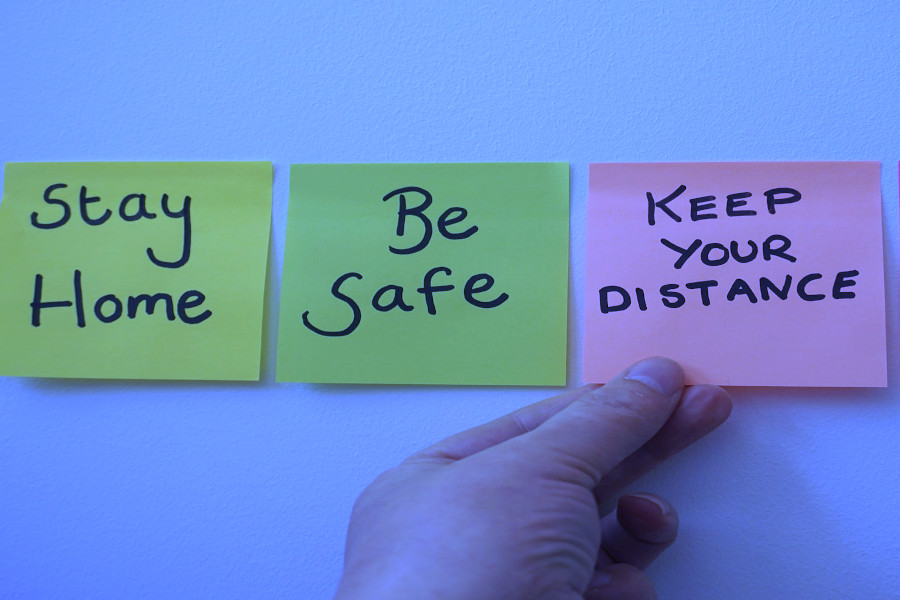 Stay
Home
Be
Safe
KEEP
YOUR
DISTANCE